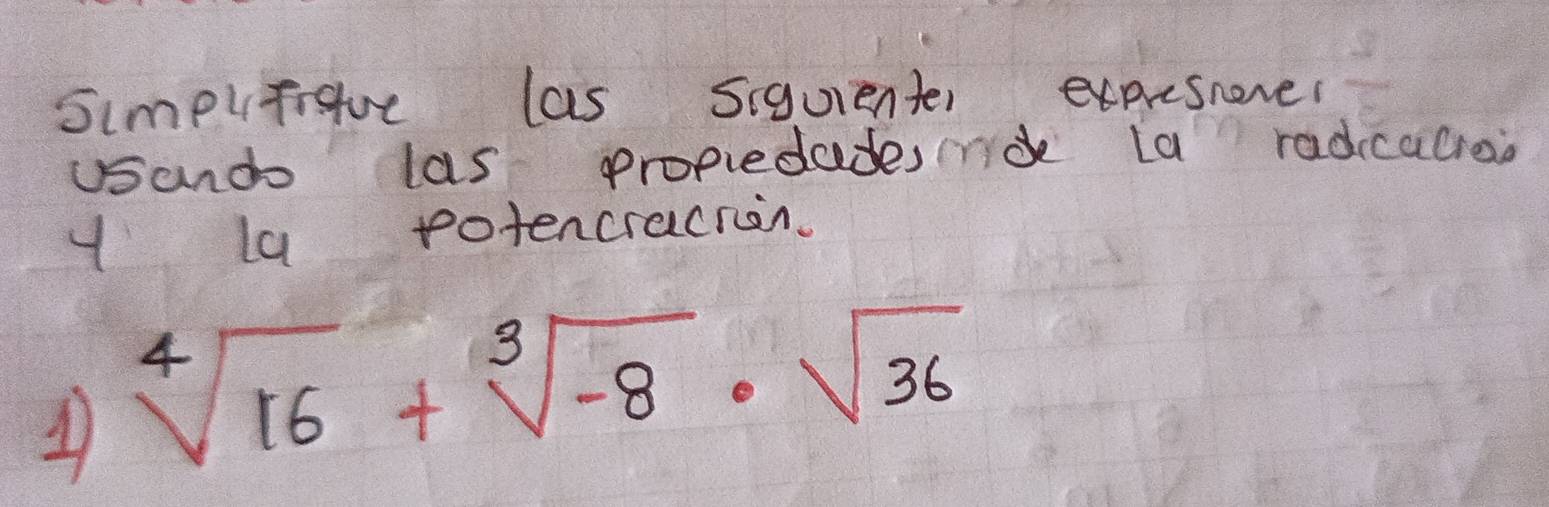 Simplifique las siguientes expresiones
usando las propiedades de la radicación
y la potenciación.
1) ⁴√16 + ³√-8 · √36